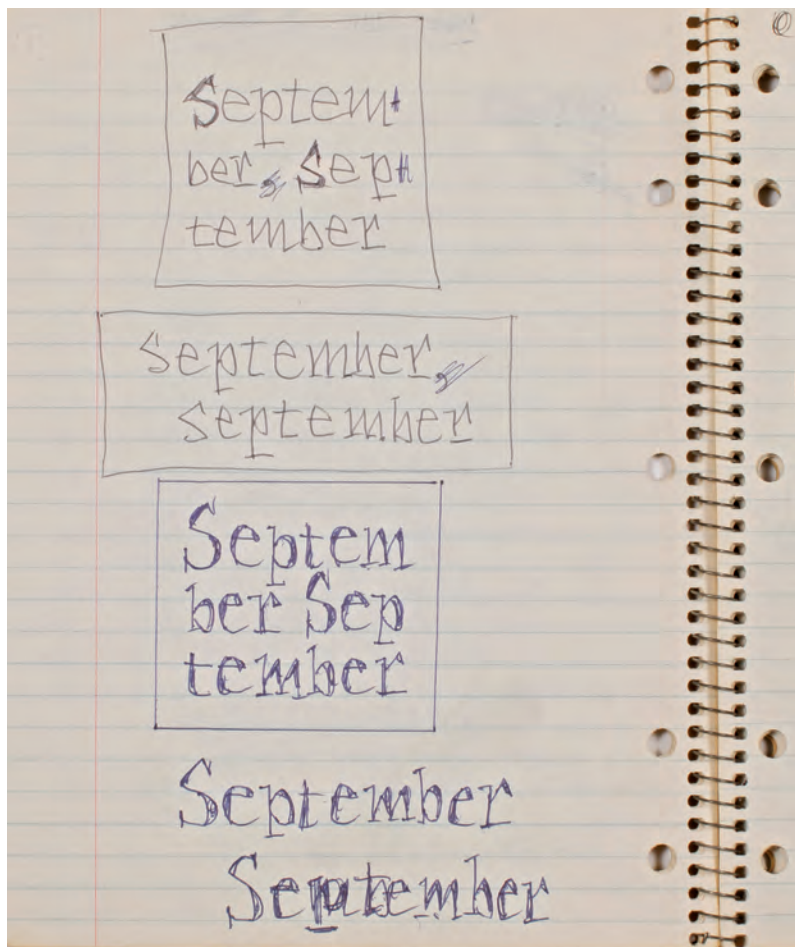 Septem
ber, Sep
tember
September,
September
Septem
ber Sep
tember
September
September